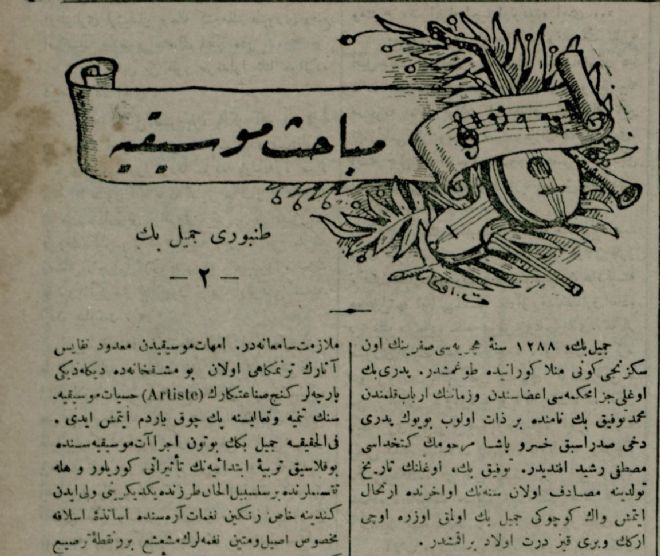 مباحث موسیقیه
طنبوری جمیل بك
— ٢ —
جمیل بك، ١٢٨٨ سنهٔ هجریه‌سی صفرینك اون
سکزنجی کونی منلا کورانیده طوغمشدر. پدری بك
اوغلی جزا محکمه‌سی اعضاسندن وزماننك ارباب قلمندن
محمد توفیق بك نامنده بر ذات اولوب بویوك پدری
دخی صدر اسبق خسرو پاشا مرحومك کتخداسی
مصطفی رشید افندیدر. توفیق بك، اوغلنك تاریخ
تولدینه مصادف اولان سنه‌نك اواخرنده ارتحال
ایتمش واك کوچوکی جمیل بك اولمق اوزره اوچی
ارکك وبری قیز درت اولاد براقمشدر.
ملازمت سامعانه‌در. امهات موسیقیدن معدود نفایس
آثارك ترنمکاهی اولان بو مشفخانه‌ده دیکله‌دیکی
پارچه‌لر کنج صناعتکارك (Artiste) حسیات موسیقیه‌
سنك تنمیه وتعالیسنه پك چوق یاردم ایتمش ایدی.
فی الحقیقه جمیل بكك بوتون اجراآت موسیقیه‌سنده
بوقلاسیق تربیهٔ ابتدائیه‌نك تأثیراتی کوریلور و هله
تقسیملرنده برسلسبیل الحان طرزنده یکدیکرینی ولی ایدن
کندینه خاص رنکین نغمات آره‌سنده اساتذهٔ اسلافه
مخصوص اصیل ومتین نغمه‌لرك مشعشع بررنقطهٔ ترصیع